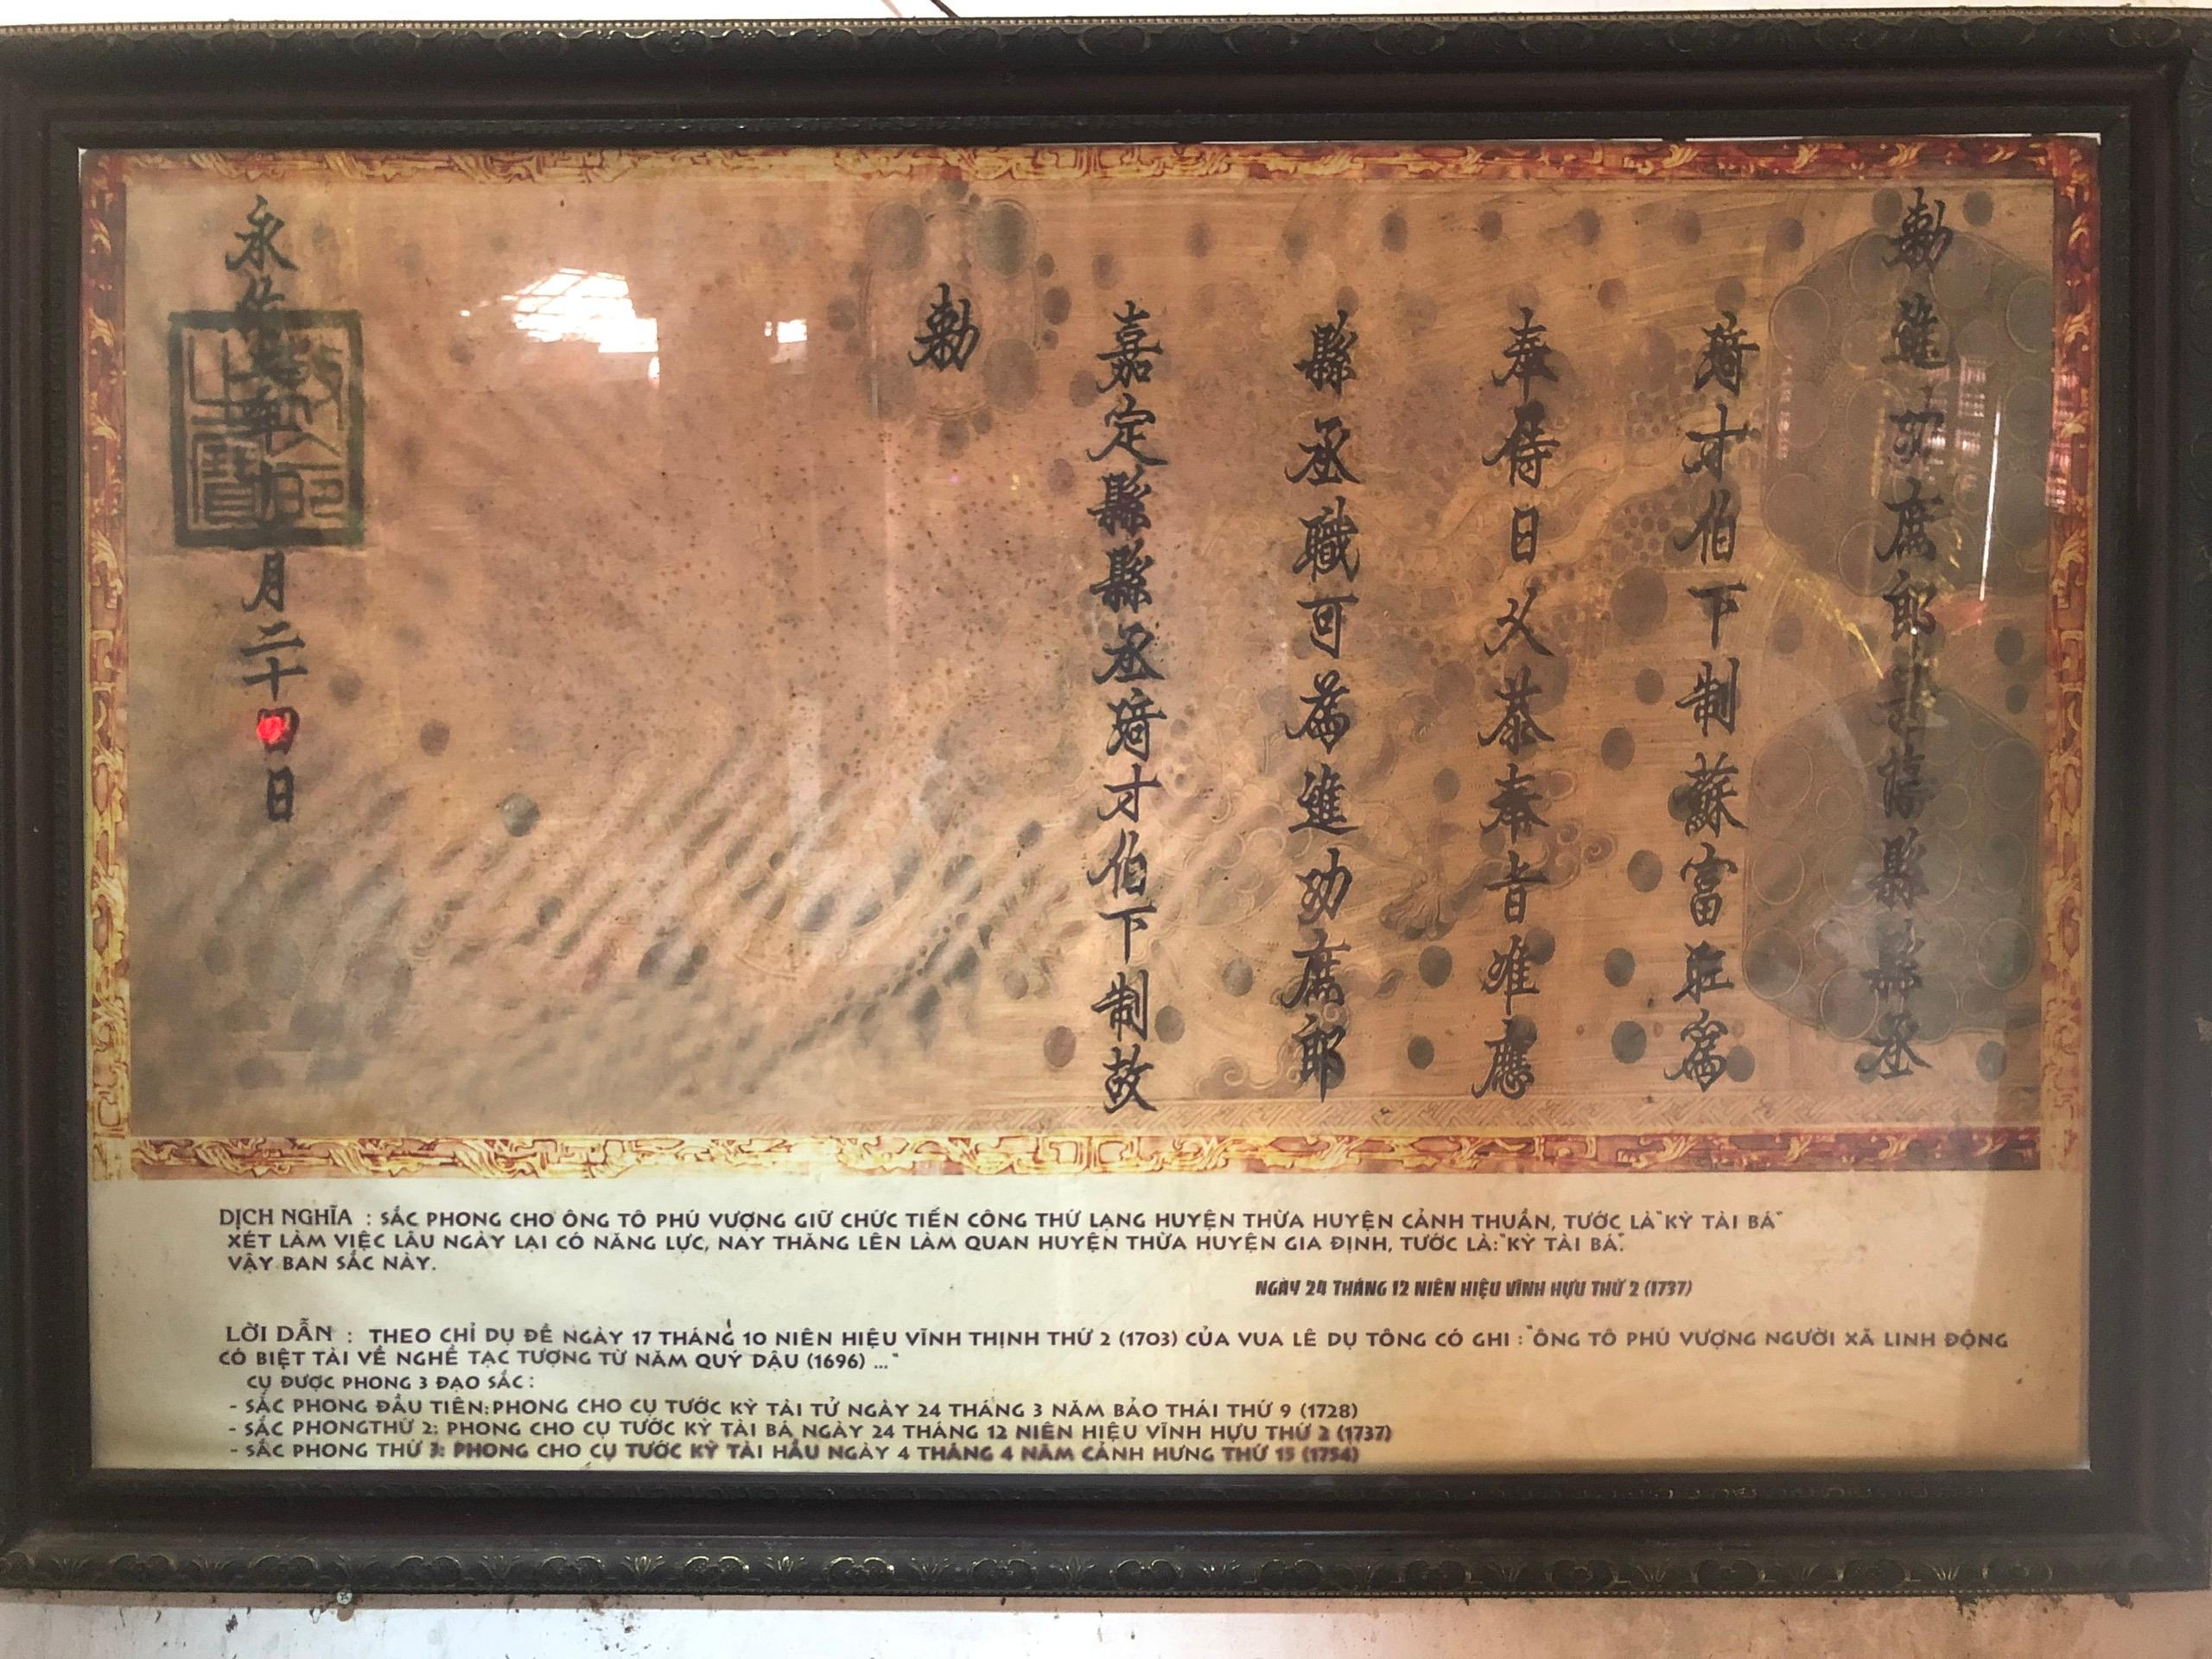 勅進功庶郎 縣縣丞
𤦺才伯下制蘇富旺為
奉侍日久恭奉旨准應
縣丞職可為進功庶郎
嘉定縣縣丞𤦺才伯下制故
勅
永佑 年 月二十四日
敕命之寶
DỊCH NGHĨA : SẮC PHONG CHO ÔNG TÔ PHÚ VƯỢNG GIỮ CHỨC TIẾN CÔNG THỨ LANG HUYỆN THỪA HUYỆN CẢNH THUẦN, TƯỚC LÀ "KỲ TÀI BÁ"
XÉT LÀM VIỆC LÂU NGÀY LẠI CÓ NĂNG LỰC, NAY THĂNG LÊN LÀM QUAN HUYỆN THỪA HUYỆN GIA ĐỊNH, TƯỚC LÀ: "KỲ TÀI BÁ".
VẬY BAN SẮC NÀY.
NGÀY 24 THÁNG 12 NIÊN HIỆU VĨNH HỰU THỨ 2 (1737)
LỜI DẪN : THEO CHỈ DỤ ĐỀ NGÀY 17 THÁNG 10 NIÊN HIỆU VĨNH THỊNH THỨ 2 (1703) CỦA VUA LÊ DỤ TÔNG CÓ GHI : "ÔNG TÔ PHÚ VƯỢNG NGƯỜI XÃ LINH ĐỘNG
CÓ BIỆT TÀI VỀ NGHỀ TẠC TƯỢNG TỪ NĂM QUÝ DẬU (1696) ..."
CỤ ĐƯỢC PHONG 3 ĐẠO SẮC :
- SẮC PHONG ĐẦU TIÊN: PHONG CHO CỤ TƯỚC KỲ TÀI TỬ NGÀY 24 THÁNG 3 NĂM BẢO THÁI THỨ 9 (1728)
- SẮC PHONGTHỨ 2: PHONG CHO CỤ TƯỚC KỲ TÀI BÁ NGÀY 24 THÁNG 12 NIÊN HIỆU VĨNH HỰU THỨ 2 (1737)
- SẮC PHONG THỨ 3: PHONG CHO CỤ TƯỚC KỲ TÀI HẦU NGÀY 4 THÁNG 4 NĂM CẢNH HƯNG THỨ 15 (1754)